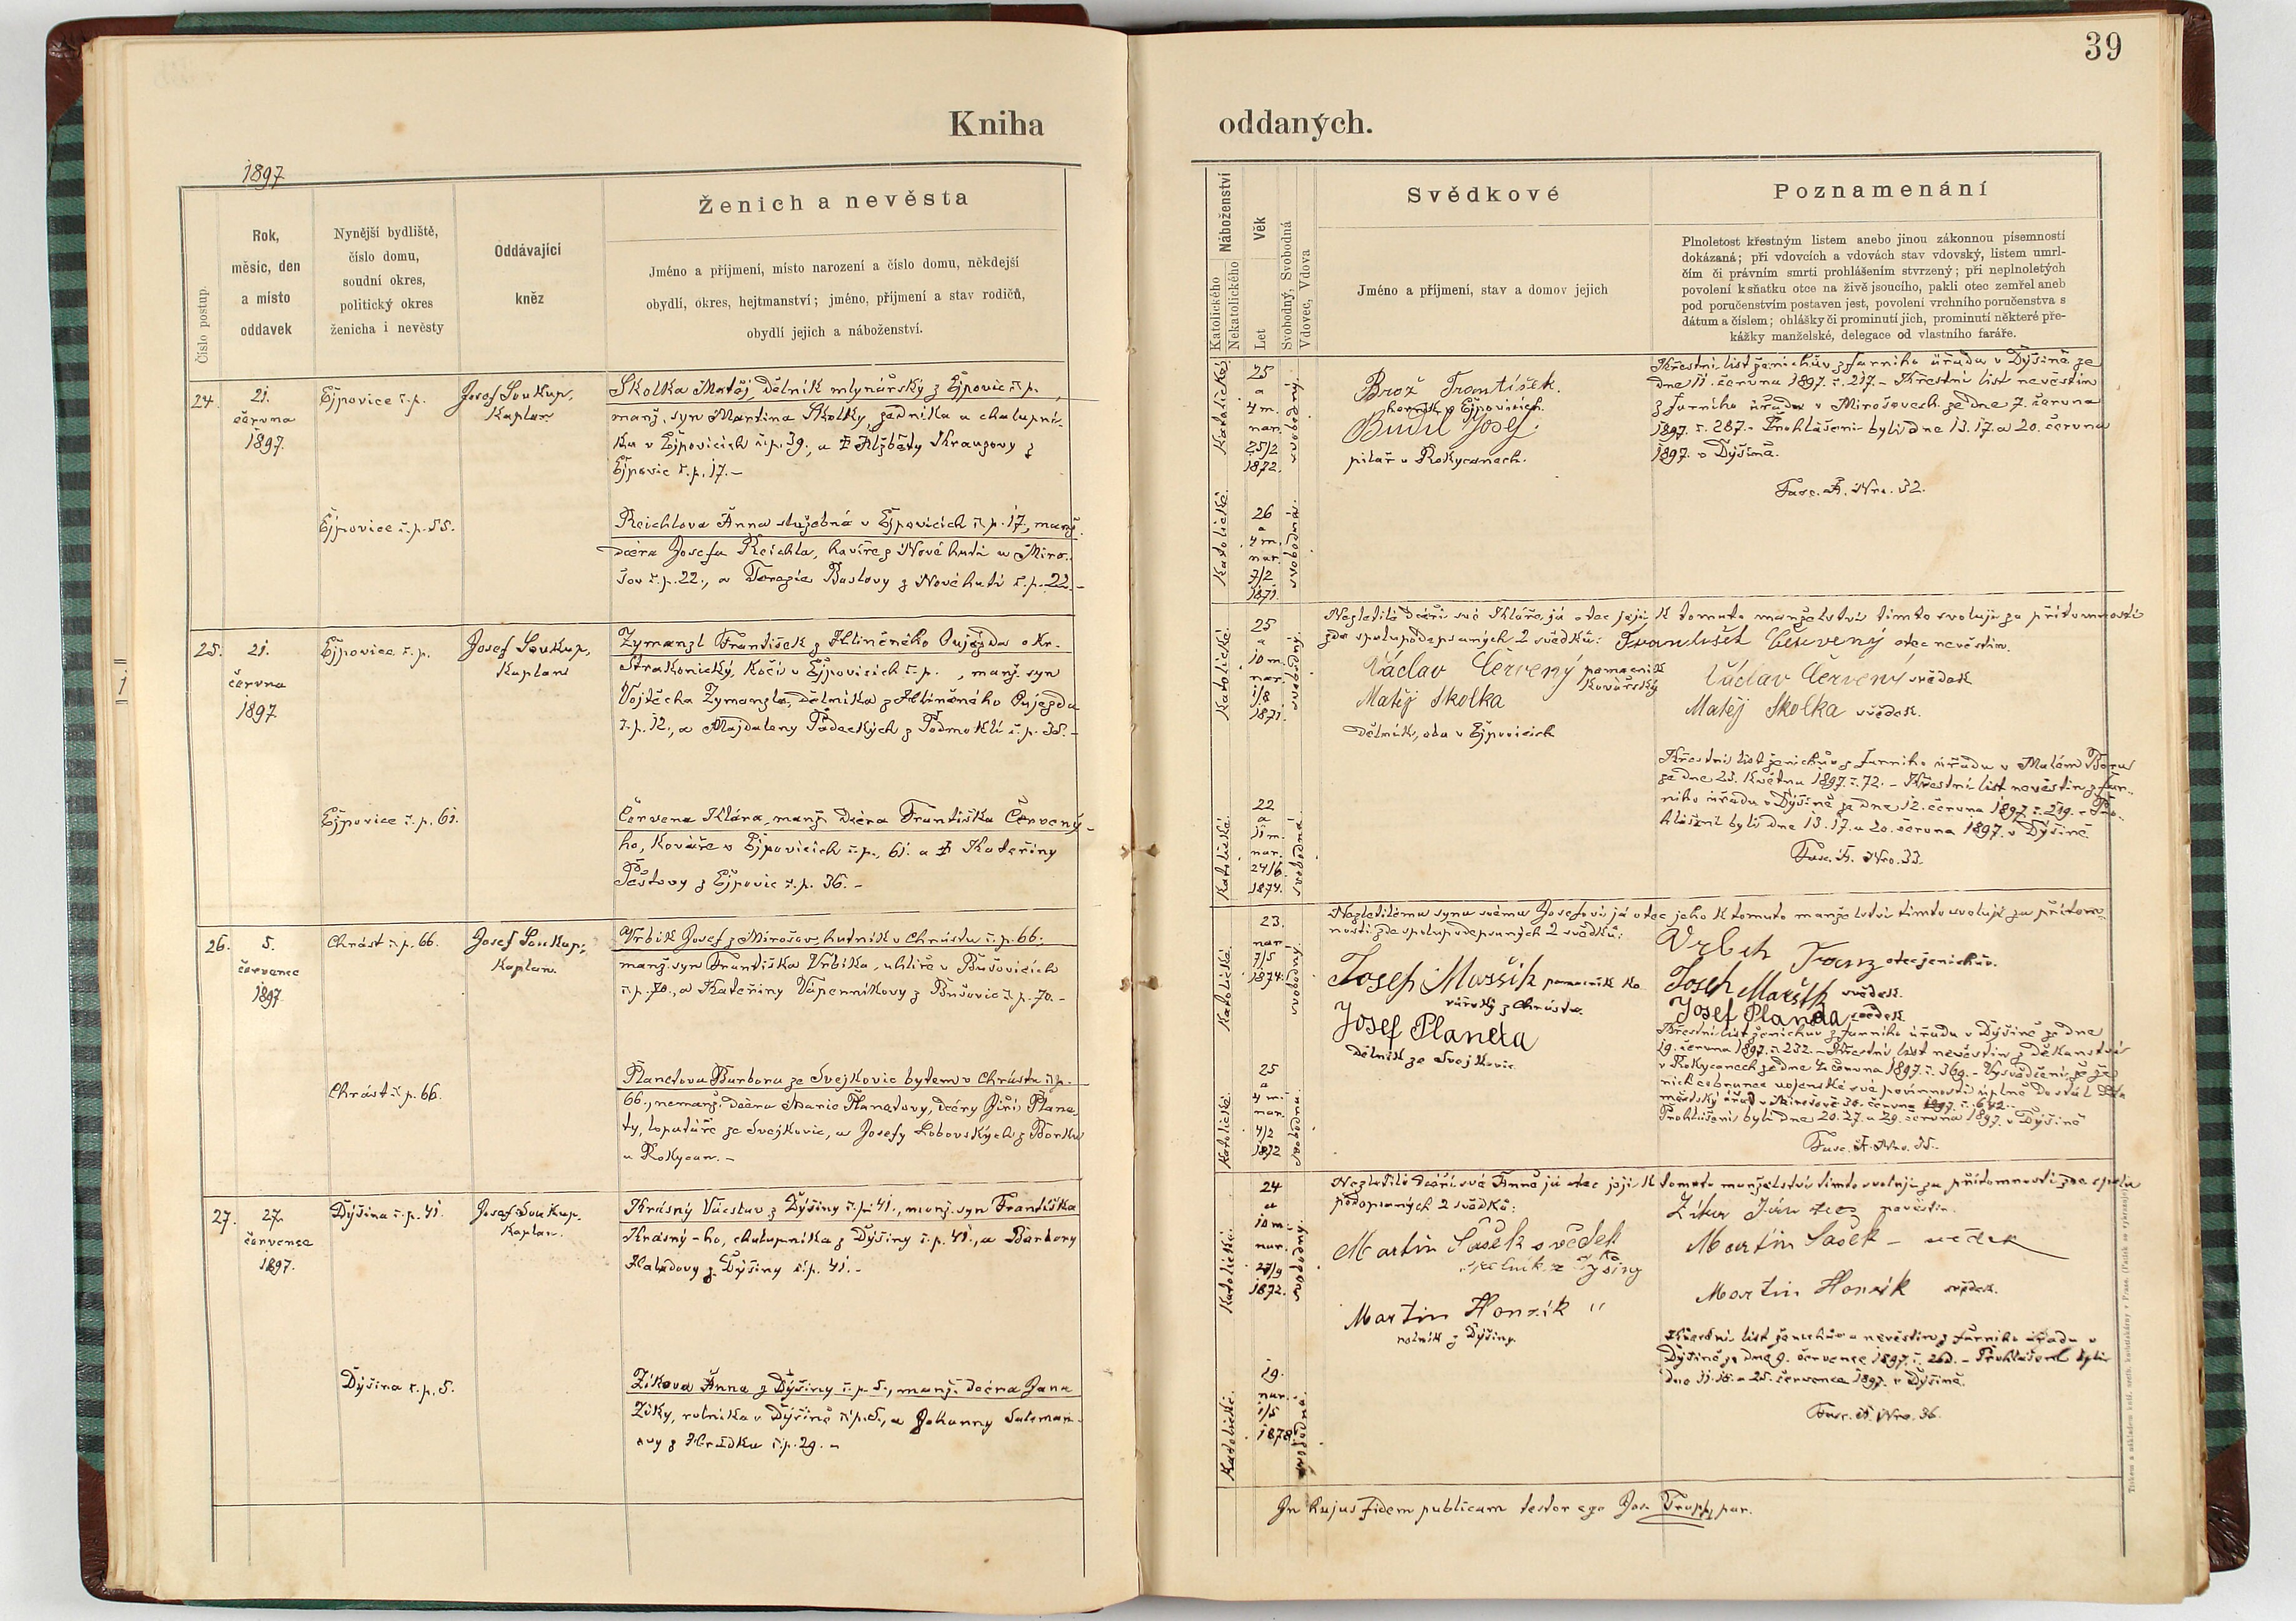 39
Kniha oddaných.
1897
Číslo postup.
Rok,
měsíc, den
a místo
oddavek
Nynější bydliště,
číslo domu,
soudní okres,
politický okres
ženicha i nevěsty
Oddávající
kněz
Ženich a nevěsta
Jméno a příjmení, místo narození a číslo domu, někdejší
obydlí, okres, hejtmanství; jméno, příjmení a stav rodičů,
obydlí jejich a náboženství.
Náboženství
Katolického
Nekatolického
Věk
Let
Svobodný, Svobodná
Vdovec, Vdova
Svědkové
Jméno a příjmení, stav a domov jejich
Poznamenání
Plnoletost křestným listem anebo jinou zákonnou písemností
dokázaná; při vdovcích a vdovách stav vdovský, listem umrl-
čím či právním smrti prohlášením stvrzený; při neplnoletých
povolení k sňatku otce na živě jsoucího, pakli otec zemřel aneb
pod poručenstvím postaven jest, povolení vrchního poručenstva s
dátum a číslem; ohlášky či prominutí jich, prominutí některé pře-
kážky manželské, delegace od vlastního faráře.
24.
21.
června
1897.
Ejpovice č.p.
Josef Soukup,
Kaplan
Skolka Matěj, dělník mlynářský z Ejpovic č.p. ,
manž. syn Martina Skolky, zedníka a chalupní-
ka v Ejpovicích č.p. 39., a Alžběty Krauzovy z
Ejpovic č.p. 17.-
Ejpovice č.p. 55.
Reichlova Anna služebná v Ejpovicích č.p. 17., manž.
dcera Josefa Reichla, havíře z Nové huti u Miro-
šov č.p. 22., a Terezie Baslovy z Nové huti č.p. 22.-
Katolické.
25
a
4 m.
nar.
25/2
1872.
svobodný.
Brož František.
horník v Ejpovicích.
Budil Josef.
pilař v Rokycanech.
Křestní list ženichův z farního úřadu v Dýšině ze
dne 11. června 1897. č. 217.- Křestní list nevěstin
z farního úřadu v Mirošovech ze dne 7. června
1897. č. 287.- Prohlášeni byli dne 13. 17. a 20. června
1897. v Dýšině.
Fasc. A. Nro. 32.
Katolické.
26
a
4 m.
nar.
7/2
1871.
svobodná.
25.
21.
června
1897
Ejpovice č.p.
Josef Soukup,
Kaplan
Zymanzl František z Hliněného Oujezda okr.
Strakonický, kočí v Ejpovicích č.p. , manž. syn
Vojtěcha Zymanzla, dělníka z Hliněného Oujezda
č.p. 12., a Majdaleny Padeckých z Podmoklí č.p. 38.-
Ejpovice č.p. 61.
Červena Klára, manž. dcera Františka Červený-
ho, kováře v Ejpovicích č.p. 61. a Kateřiny
Pěstovy z Ejpovic č.p. 36.-
Nezletilé dceři své Kláře, já otec její, k tomuto manželství tímto svoluji za přítomnosti
zde spolupodepsaných 2 svědků: František Červený otec nevěstin.
Katolické.
25
a
10 m.
nar.
1/8
1871.
svobodný.
Václav Červený pomocník
kovářský
Matěj Skolka
dělník, oba v Ejpovicích
Václav Červený svědek
Matěj Skolka svědek.
Křestní list ženichův z farního úřadu v Malém Boru
ze dne 23. května 1897. č. 72.- Křestní list nevěstin z far-
ního úřadu v Dýšině ze dne 12. června 1897. č. 219.- Pro-
hlášeni byli dne 13. 17. a 20. června 1897. v Dýšině
Fasc. A. Nro. 33.
Katolické.
22
a
11 m.
nar.
24/6.
1874.
svobodná.
26.
5.
července
1897.
Chrást č.p. 66.
Josef Soukup,
Kaplan.
Vrbik Josef z Mirošov, hutník v Chrástu č.p. 66.
manž. syn Františka Vrbika, uhlíře v Bušovicích
č.p. 70., a Kateřiny Vápenníkovy z Bušovic č.p. 70.-
Chrást č.p. 66.
Planetova Barbora ze Svejkovic bytem v Chrástu č.p.
66., nemanž. dcera Marie Planetovy, dcery Jiří Plane-
ty, lopatáře ze Svejkovic, a Josefy Lobovských z Borku
u Rokycan.-
Nezletilému synu svému Josefovi já otec jeho k tomuto manželství tímto svoluji za přítom-
nosti zde spolupodepsaných 2 svědků:
Katolické.
23.
nar.
7/5
1874.
svobodný.
Josef Marších pomocník ko-
vářský z Chrástu.
Josef Planeta
dělník ze Svejkovic.
Franz otec ženichův.
svědek.
Josef Planeta svědek
Křestní list ženichův z farního úřadu v Dýšině ze dne
19. června 1897. č. 232.- Křestní list nevěstin z děkanství
v Rokycanech ze dne 4. června 1897. č. 369.- Vysvědčení, že že-
nich co branec vojenské své povinnosti úplně dostál dal
městský úřad v Mirošově 30. června 1897. č. 642.-
Prohlášeni byli dne 20. 27. a 29. června 1897. v Dýšině
Fasc. A. Nro. 35.
Katolické.
25
a
4 m.
nar.
4/2
1872
svobodná.
27.
27.
července
1897.
Dýšina č.p. 41.
Josef Soukup,
Kaplan.
Krásný Václav z Dýšiny č.p. 41., manž. syn Františka
Krásný-ho, chalupníka z Dýšiny č.p. 41., a Barbory
Haladovy z Dýšiny č.p. 41.-
Dýšina č.p. 5.
Zíkova Anna z Dýšiny č.p. 5., manž. dcera Jana
Zíky, rolníka v Dýšině č.p. 5., a Johanny Salcman-
ovy z Hrádku č.p. 29.-
Nezletilé dceři své Anně já otec její k tomuto manželství tímto svoluji za přítomnosti zde spolu
podepsaných 2 svědků:
Katolické.
24
a
10 m.
nar.
27/9
1872.
svobodný.
Martin Sašek svědek
Martin Honzík "
rolník z Dýšiny.
Zíka Jan otec nevěstin.
Martin Sašek - svědek
Martin Honzík svědek.
Křestní list ženichův a nevěstin z farního úřadu v
Dýšině ze dne 9. července 1897. č. - Prohlášeni byli
dne 11. 18. a 25. července 1897. v Dýšině.
Fasc. A. Nro. 36.
Katolické.
19.
nar.
1/5
1878.
svobodná.
In hujus fidem publicam testor ego Jos. par.